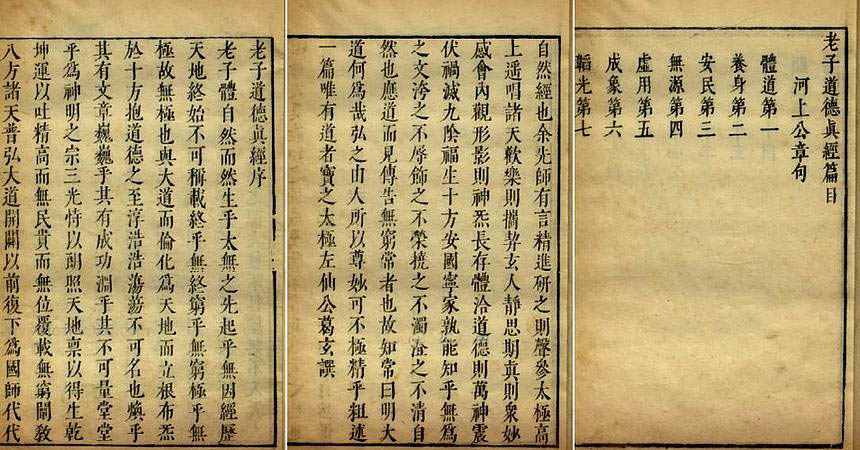 老子道德眞經序
老子體自然而然生乎太無之先起乎無因經歷
天地終始不可稱載終乎無終窮乎無窮極乎無
極故無極也與大道而倫化爲天地而立根布炁
於十方抱道德之至淳浩浩蕩蕩不可名也煥乎
其有文章巍巍乎其有成功淵乎其不可量堂堂
乎爲神明之宗三光恃以朗照天地禀以得生乾
坤運以吐精高而無民貴而無位覆載無窮闡敎
八方諸天普弘大道開闢以前復下爲國師代代
自然經也余先師有言精進研之則聲參太極高
上遥唱諸天歡樂則攜契玄人靜思期眞則衆妙
感會內觀形影則神炁長存體洽道德則萬神震
伏禍滅九陰福生十方安國寧家孰能知乎無爲
之文洿之不辱飾之不榮撓之不濁澄之不清自
然也應道而見傳告無窮常者也故知常曰明大
道何爲哉弘之由人所以尊妙可不極精乎粗述
一篇唯有道者寶之太極左仙公葛玄譔
老子道德眞經篇目
河上公章句
體道第一
養身第二
安民第三
無源第四
虛用第五
成象第六
韜光第七